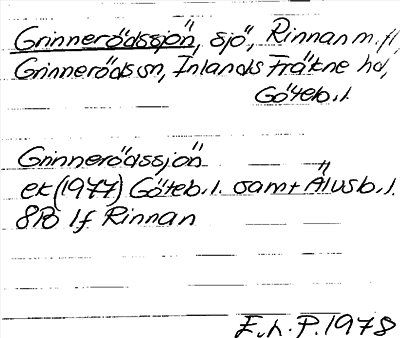 Grinnerödssjön, sjö, Rinnan m.fl,
Grinneröds sn, Inlands Fräkne hd,
Göteb.l.
Grinnerödssjön
ek (1977) Göteb.l. samt Älvsb.l.
8B 1f Rinnan
E.h.P. 1978